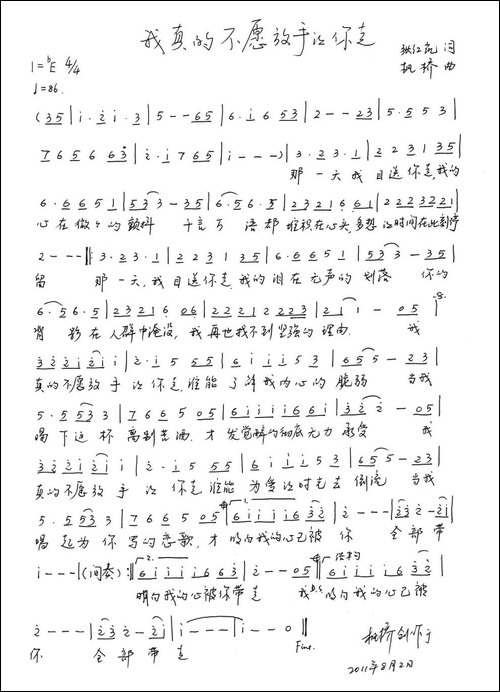 我真的不愿放手让你走
词
1=♭E 4/4
枫桥 曲
♩=86.
(35|i·2i·3|5--65|6·i653|2--23|5·553|
765663|2·i765|i---)|3·23·1|223135|
那一天我目送你走,我的
6·6651|533-35|6·56·5|232166 1|2223221|
心在做 的颤抖 千言万语却堆积在心头,多想让时间在此刻停
2---‖:3·23·1|223135|6·6651|533-35|
留 那一天,我目送你走,我的泪在无声的划落 你的
6·56·5|2321606|22212223|21 1-05|
背影在人群中淹没,我再也找不到坚强的理由. 我
322i2ii|2·i555|6iii53|655-23|
真的不愿放手让你走谁能了解我内心的脆弱 当我
5·5533|766505|6iiii66i|322-05|
喝下这杯离别苦酒.才发觉醉的彻底无力承受 我
322i2ii|2·i555|6iii53|655-23|
真的不愿放手让你走谁能为爱让时光去倒流 当我
5·5533|766505|6iiii632|2---|232-2i|
唱起为你写的恋歌,才明白我的心已被你 全部带
i---|(间奏):‖2.6iiii663|2--05|结束句6iiii632|
明白我的心被你带走 我D.S明白我的心已被
2---|232-2i|i---|i--0‖
你 全部带走 Fine.
枫桥创作于
2011年8月2日